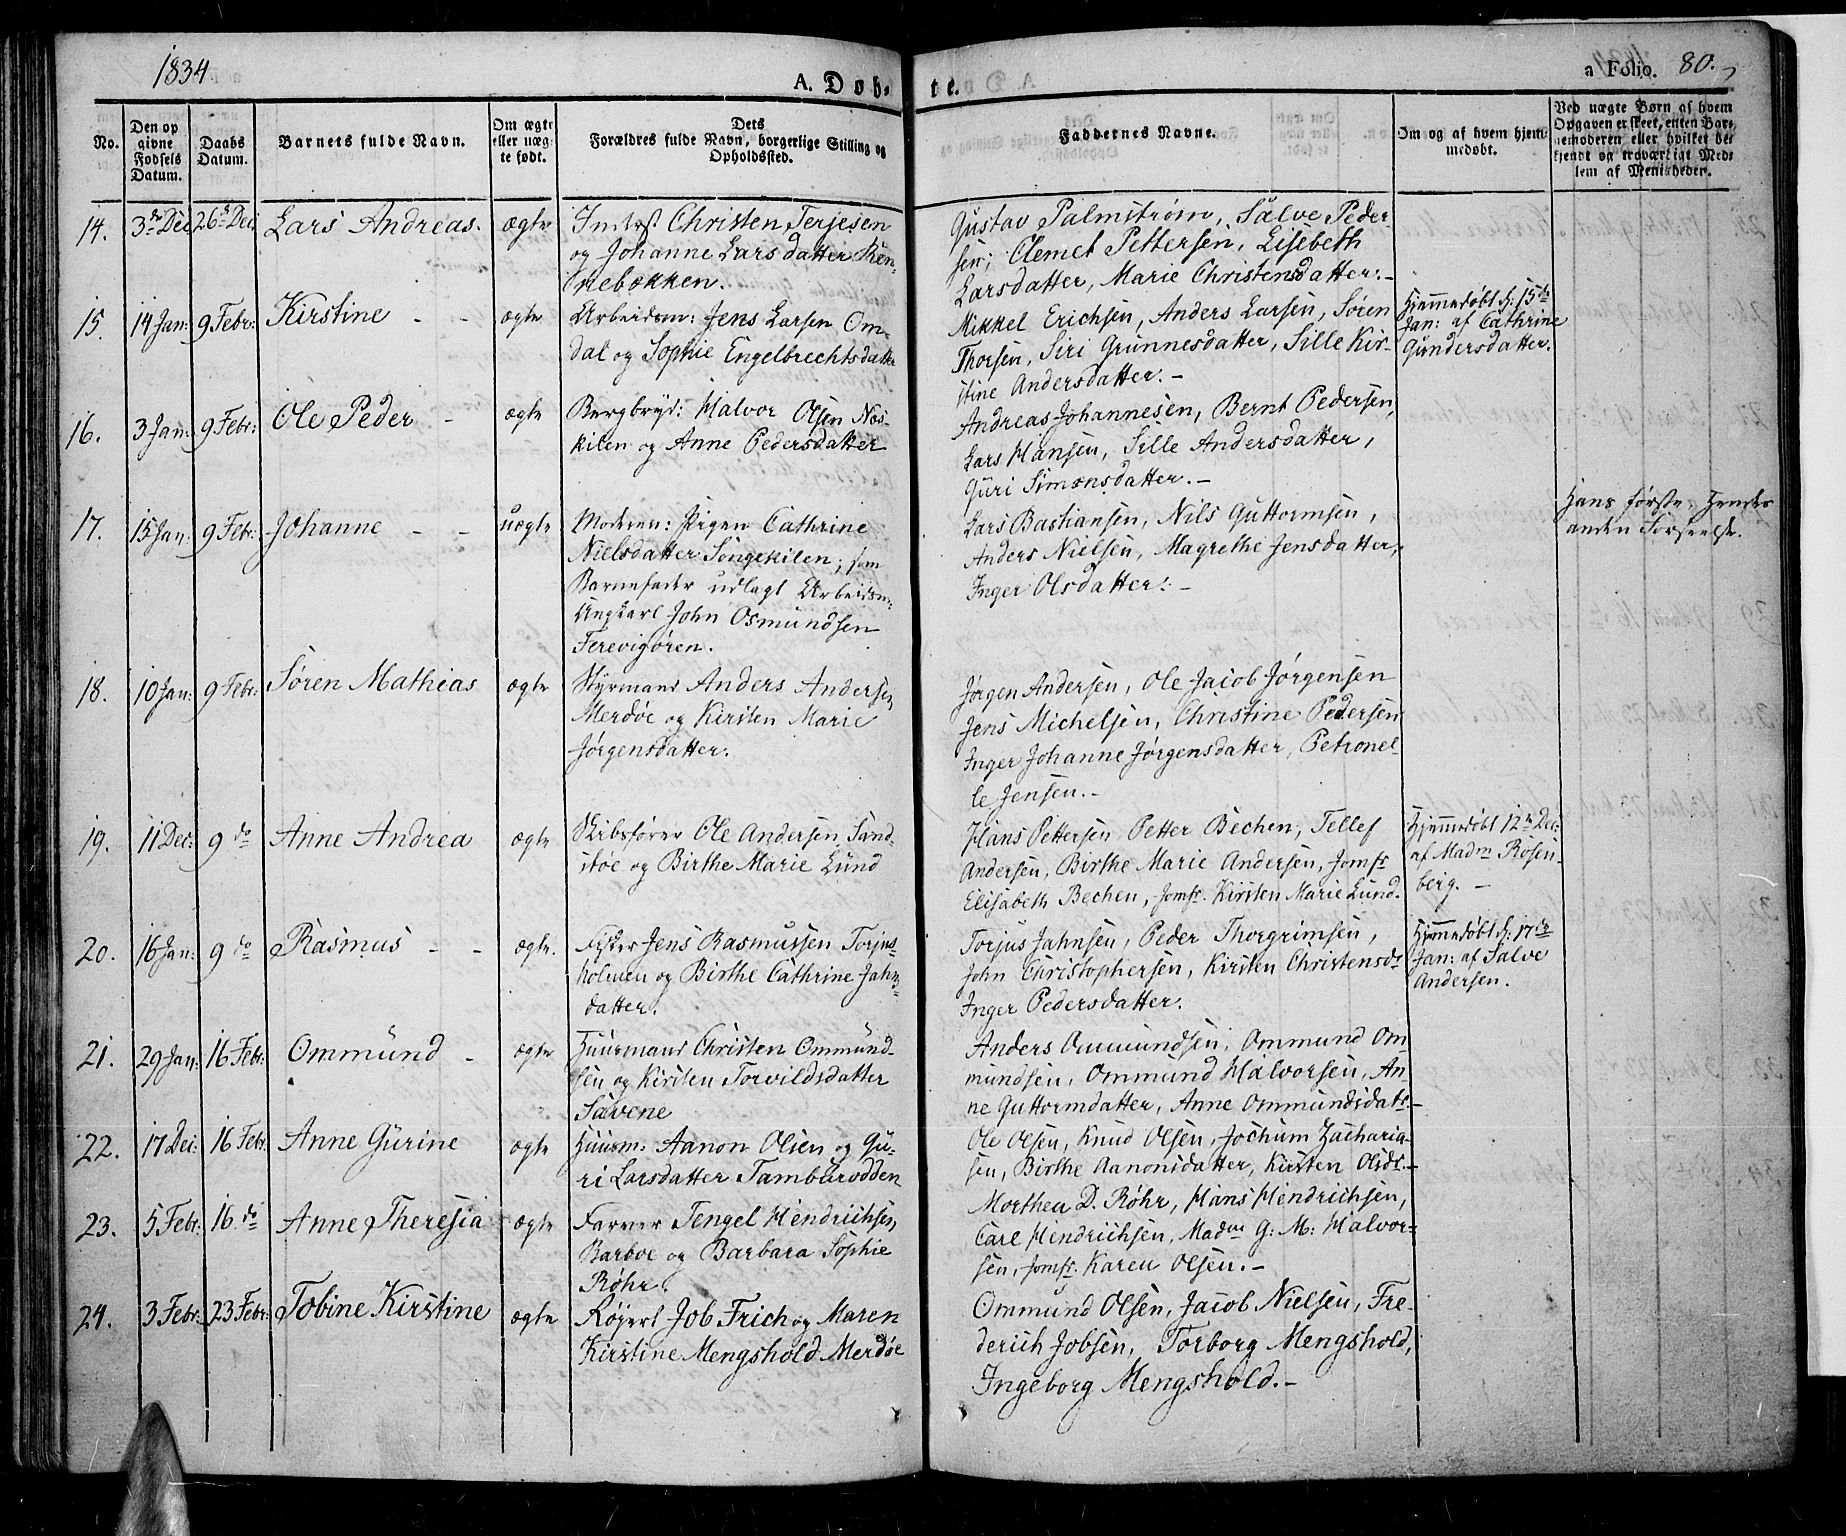 1834
A. Døb-
te.
a Folio. 80.
No.
Den opgivne Fødsels Datum.
Daabs Datum.
Barnets fulde Navn.
Om ægte eller uægte født.
Dets Forældres fulde Navn, borgerlige Stilling og Opholdssted.
Faddernes Navne.
Om og af hvem hjemmedøbt.
Ved uægte Børn af hvem Opgaven er skeet, enten Barnemoderen eller hvilket bekjendt og troværdigt Medlem af Menigheden.
14. 3de Dec 26de Dec. Lars Andreas. ægte
Inderst Christen Terjesen
og Johanne Larsdatter Ren-
nebækken.
Gustav Palmstrøm, Salve Peder-
sen, Clemet Pettersen, Lisebeth
Larsdatter, Marie Christensdatter.-
15. 14 Jan: 9 Febr: Kirstine - - ægte
Arbeidsm: Jens Larsen Om-
dal og Sophie Engelbrechtsdatter
Mikkel Erichsen, Anders Larsen, Søren
Thorsen, Siri Grunnesdatter, Sille Kir-
stine Andersdatter.-
Hjemmedøbt d: 15de
Jan: af Cathrine
Gundersdatter.
16. 3 Jan: 9 Febr: Ole Peder - ægte
Bergbryd: Halvor Olsen Næs-
kilen og Anne Pedersdatter
Andreas Johannesen, Bernt Pedersen,
Lars Hansen, Sille Andersdatter,
Guri Simonsdatter.-
17. 15 Jan: 9 Febr: Johanne - - uægte
Moderen: Pigen Cathrine
Nielsdatter Songekilen; som
Barnefader udlagt Arbeidsm:
Ungkarl John Osmundsen
Ferevigøren.
Lars Bastiansen, Nils Guttormsen,
Anders Nielsen, Magrethe Jensdatter,
Inger Olsdatter:-
Hans første, Hendes
anden Forseelse.
18. 10 Jan: 9 Febr: Søren Mathias ægte
Styrmand Anders Andersen
Merdøe og Kirsten Marie
Jørgensdatter.
Jørgen Andersen, Ole Jacob Jørgensen
Jens Michelsen, Christine Pedersen
Inger Johanne Jørgensdatter, Petronel-
le Jensen.-
19. 11 Dec: 9 do Anne Andrea ægte
Skibsfører Ole Andersen Sand-
støe og Birthe Marie Lund
Hans Pettersen Petter Bechen, Tellef
Andersen, Birthe Marie Andersen, Jomfr
Elisabeth Bechen, Jomfr. Kirsten Marie Lund.
Hjemmedøbt 12te Dec:
af Madm Rosen-
berg. -
20. 16 Jan: 9 do Rasmus - - ægte.
Fisker Jens Rasmussen Torjus-
holmen og Birthe Cathrine Jahns-
datter.
Torjus Jahnsen, Peder Thorgrimsen,
John Christophersen, Kirsten Christensdr
Inger Pedersdatter.
Hjemmedøbt d: 17de
Jan: af Salve
Andersen.
21. 29 Jan: 16 Febr: Ommund - ægte
Huusmand Christen Ommund-
sen og Kirsten Torvildsdatter
Savene
Anders Ommundsen, Ommund Om-
mundsen, Ommund Halvorsen, An-
ne Guttormdatter, Anne Ommundsdatr.-
22. 17 Dec: 16 Febr: Anne Gurine ægte
Huusm: Aanon Olsen og Gu-
ri Larsdatter Tamburodden
Ole Olsen, Knud Olsen, Jochum Zacharia-
sen, Birthe Aanonsdatter, Kirsten Olsdr.-
23. 5 Febr: 16. do Anne Theresia ægte
Farver Tengel Hendrichsen
Barboe og Barbara Sophie
Røhr.
Morthen D. Røhr, Hans Hendrichsen,
Carl Hendrichsen, Madm G: M: Halvor-
sen, Jomfr. Karen Olsen.-
24. 3 Febr: 23 Febr: Tobine Kirstine ægte
Røjert Job Frich og Maren
Kirstine Mengshold Merdøe
Ommund Olsen, Jacob Nielsen, Fre-
derich Jobsen, Torborg Mengshold,
Ingeborg Mengshold.-